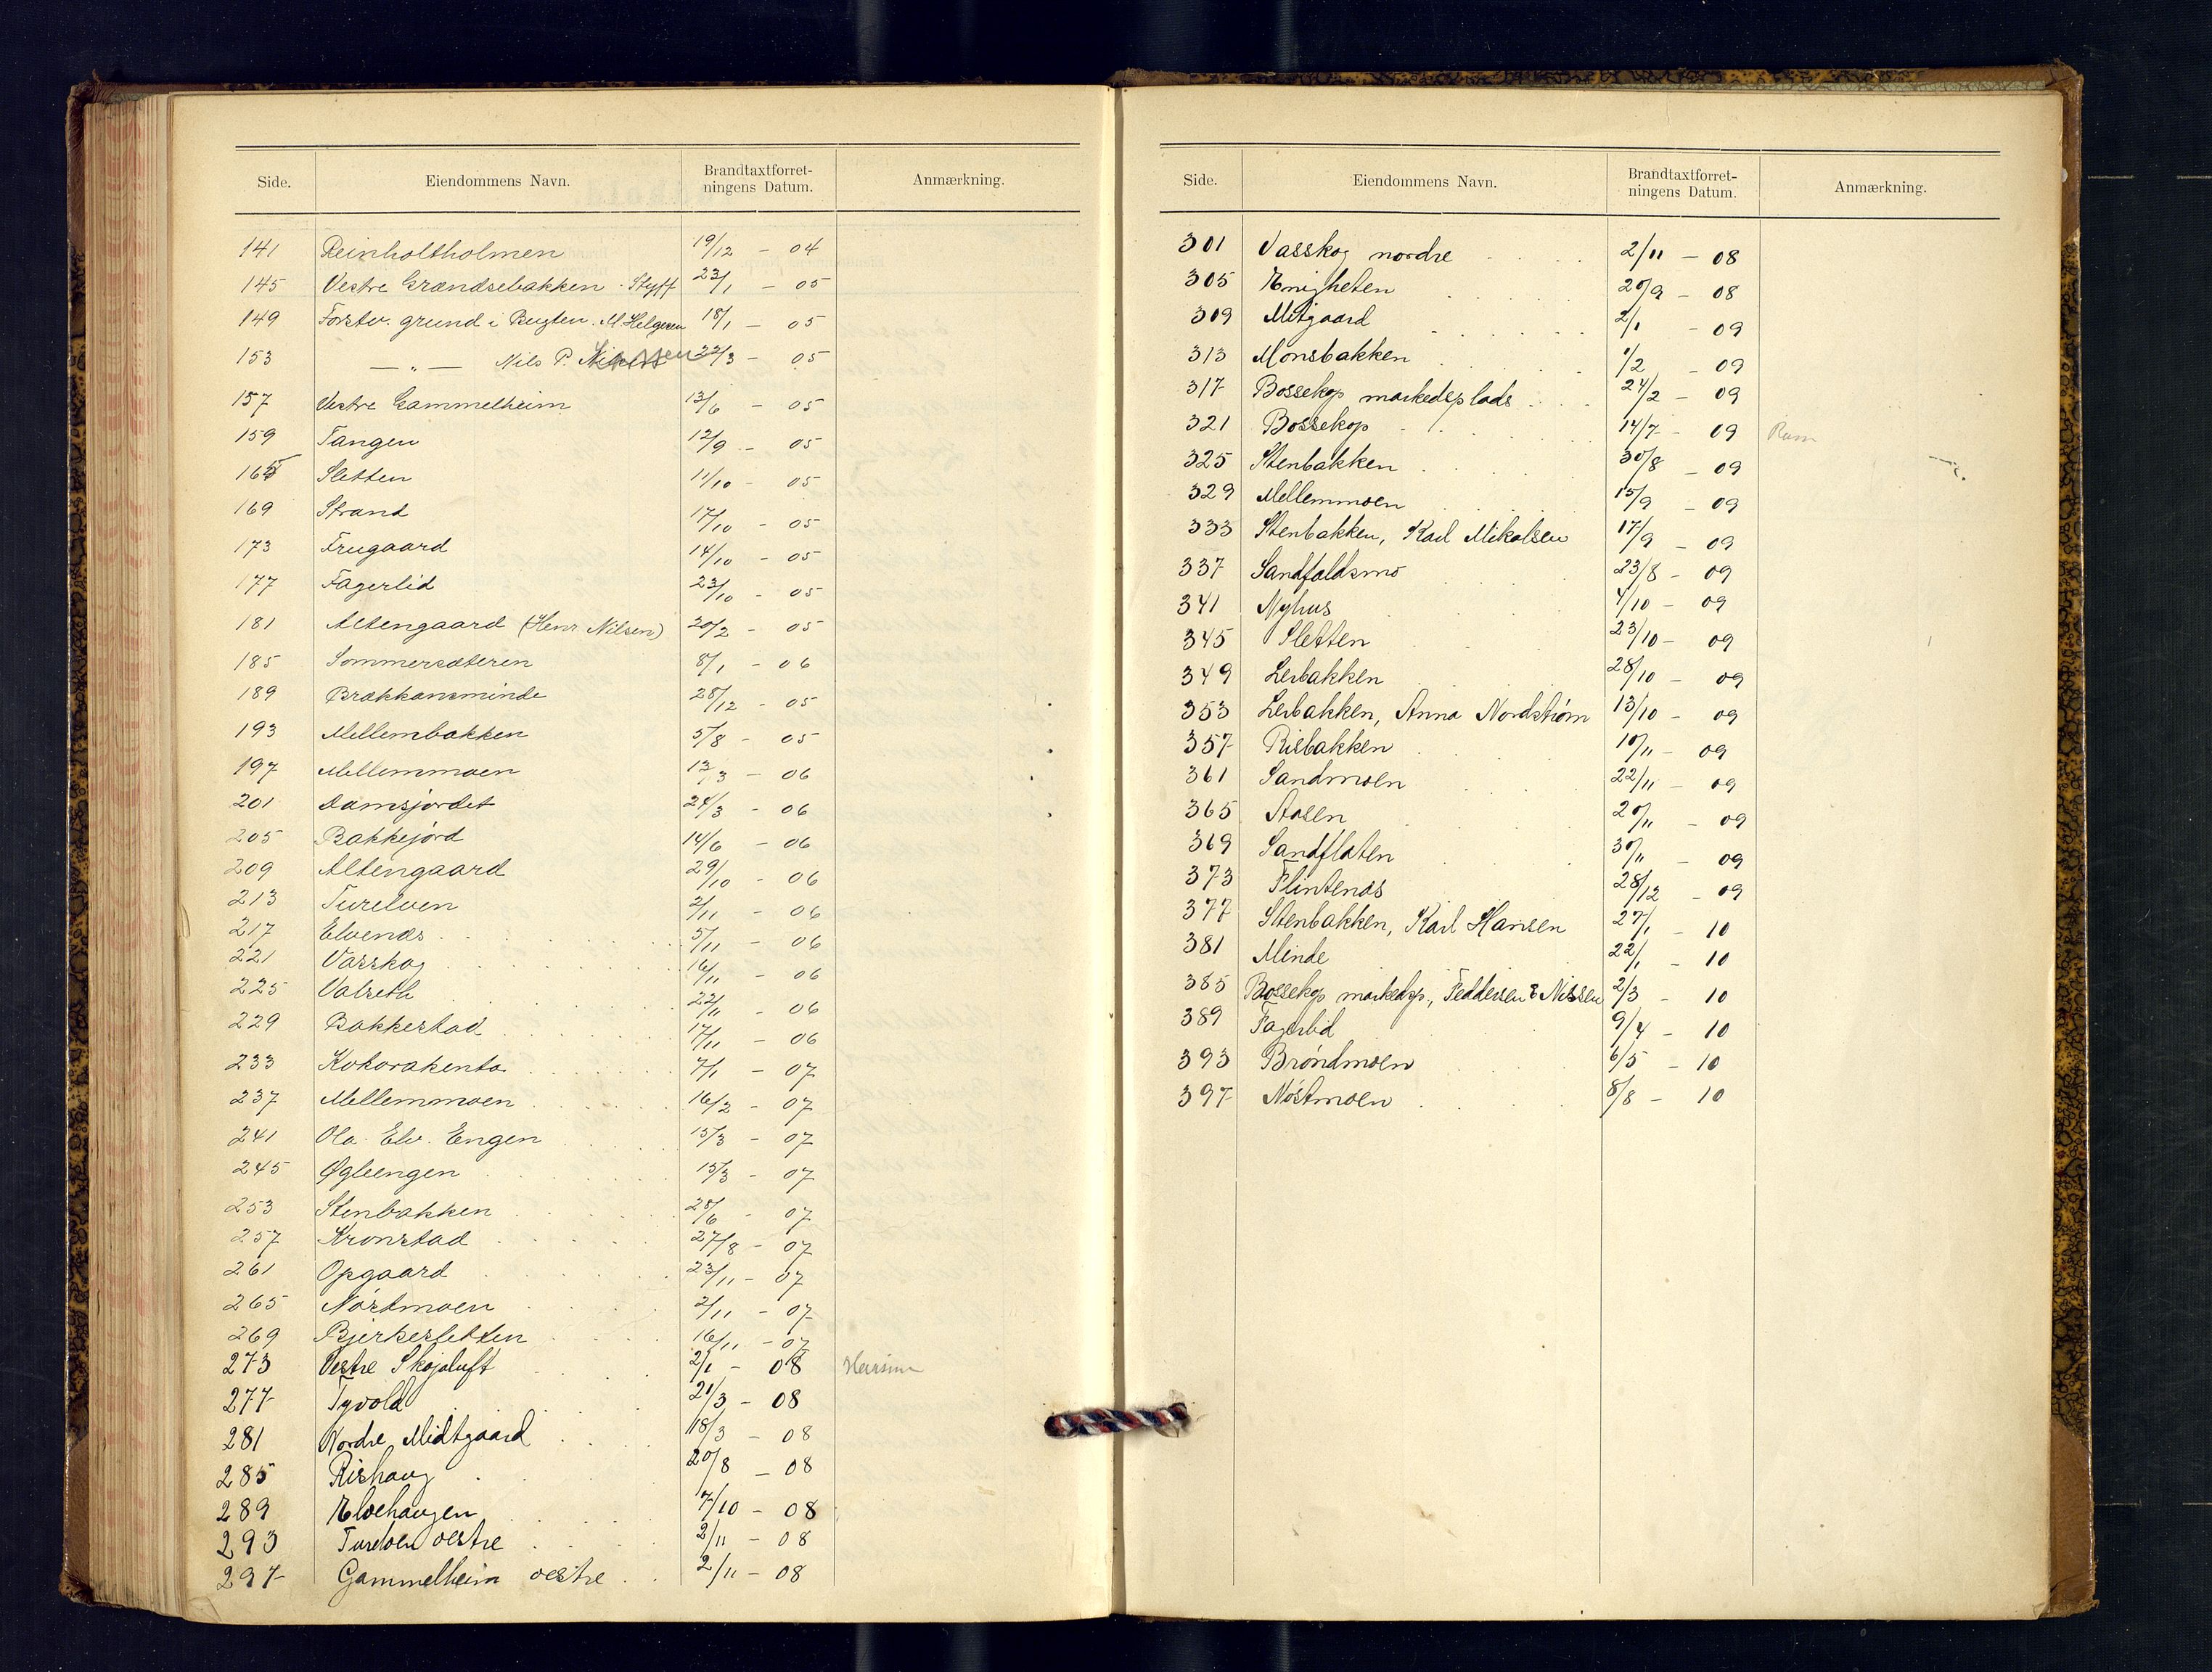 Side. Eiendommens Navn. Brandtaxtforret-
ningens Datum. Anmærkning.
141 Reinholtholmen 19/12 - 04
145 Vestre Grændsebakken. Styff 23/1 - 05
149 Forstv. grund i Bugten. M. Helgesen 18/1 - 05
153 — „ — Nils P. 22/3 - 05
157 Vestre Gammelheim 13/6 - 05
159 Tangen 12/9 - 05
165 Sletten 11/10 - 05
169 Strand 17/10 - 05
173 Frugaard 14/10 - 05
177 Fagerlid 23/10 - 05
181 Altengaard (Henr. Nilsen) 20/2 - 05
185 Sommersæteren 8/1 - 06
189 Brækkansminde 28/12 - 05
193 Mellembakken 5/8 - 05
197 Mellemmoen 12/3 - 06
201 Damsjordet 24/3 - 06
205 Bakkejord 14/6 - 06
209 Altengaard 29/10 - 06
213 Turelven 2/11 - 06
217 Elvenæs 5/11 - 06
221 Vasskog 16/11 - 06
225 Valseth 22/11 - 06
229 Bakkestad 17/11 - 06
233 Kokorakenta 7/1 - 07
237 Mellemmoen 16/2 - 07
241 Ola. Elv. Engen 15/3 - 07
245 Øgleengen 15/3 - 07
253 Stenbakken 28/6 - 07
257 Kronstad 27/8 - 07
261 Opgaard 23/11 - 07
265 Nøstmoen 2/11 - 07
269 Bjerkesletten 16/11 - 07
273 Vestre Skojaluft 2/1 - 08
277 Tyvold 21/3 - 08
281 Nordre Midtgaard 18/3 - 08
285 Rishaug 20/8 - 08
289 Elvehaugen 7/10 - 08
293 Turelven vestre 2/11 - 08
297 Gammelheim vestre 2/11 - 08
Side. Eiendommens Navn. Brandtaxtforret-
ningens Datum. Anmærkning.
301 Vasskog nordre 2/11 - 08
305 Enigheten 20/9 - 08
309 Mitgaard 2/1 - 09
313 Monsbakken 1/2 - 09
317 Bossekop markedsplads 24/2 - 09
321 Bossekop 14/7 - 09
325 Stenbakken 30/8 - 09
329 Mellemmoen 15/9 - 09
333 Stenbakken, Karl Mikalsen 17/9 - 09
337 Sandfaldsmo 23/8 - 09
341 Nyhus 4/10 - 09
345 Sletten 23/10 - 09
349 Lerbakken 28/10 - 09
353 Lerbakken, Anna Nordstrøm 13/10 - 09
357 Risbakken 10/11 - 09
361 Sandmoen 22/11 - 09
365 Aasen 20/11 - 09
369 Sandflaten 30/11 - 09
373 Flintenæs 28/12 - 09
377 Stenbakken, Karl Hansen 27/1 - 10
381 Minde 22/1 - 10
385 Bossekop markedsp., Feddersen & Nissen 2/3 - 10
389 Fagerlid 9/4 - 10
393 Brøndmoen 6/5 - 10
397 Nøstmoen 8/8 - 10